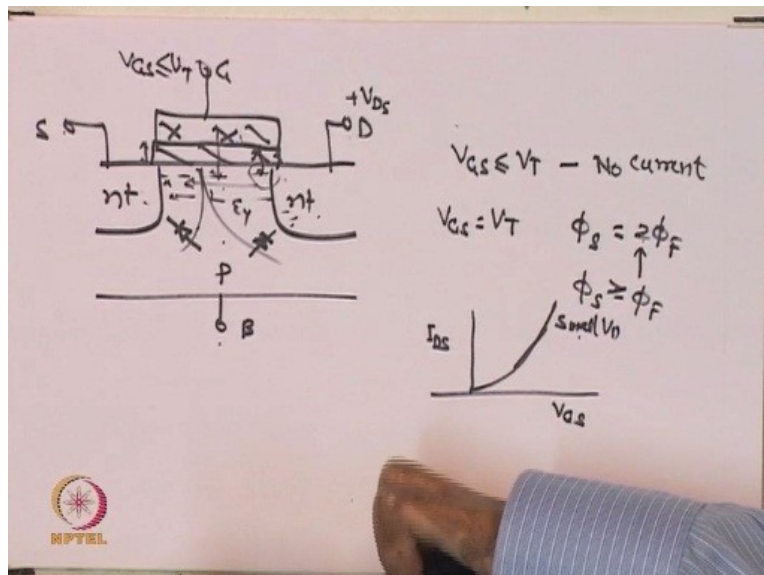 VGS ≤ VT
G
S
+VDS
D
n+
Ey
n+
P
B
VGS ≤ VT - No current
VGS = VT
φS = 2φF
φS ≥ φF
IDS
Small VD
VGS
NPTEL